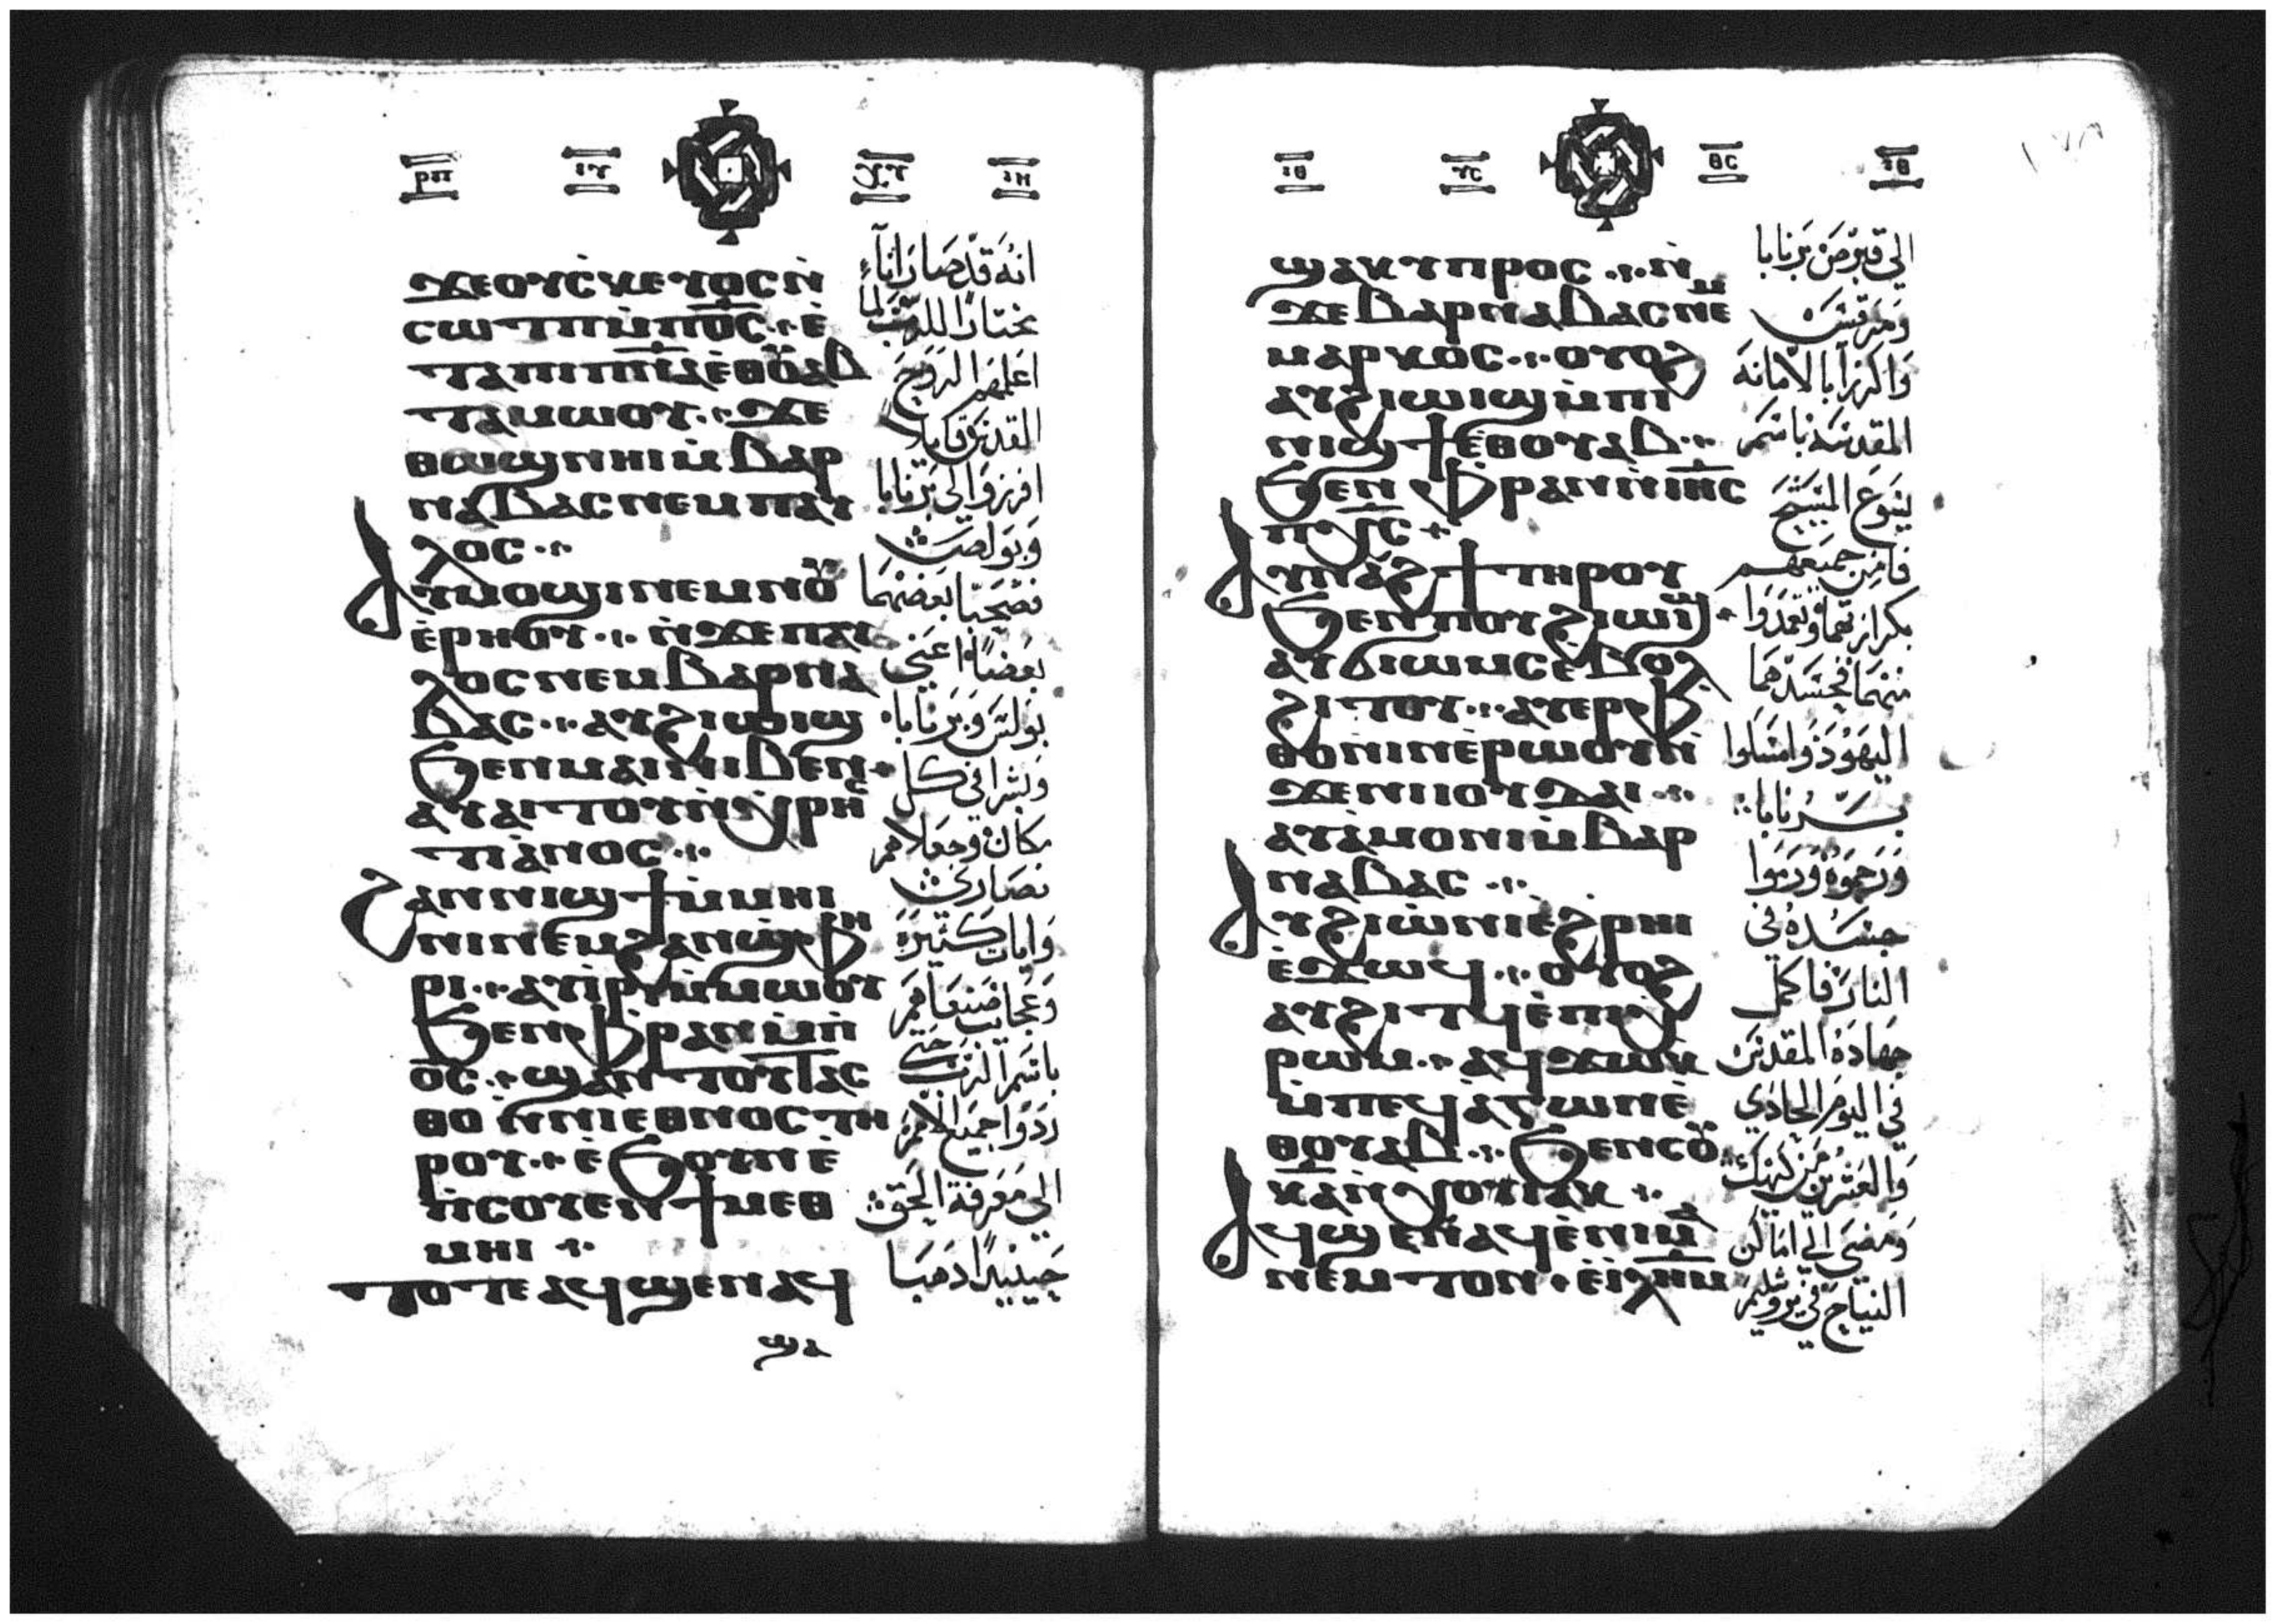 ⲣⲡ ⲓⲩ ⲭⲩ ⲓⲏ
ϫⲉⲟⲩⲥ̀ⲕⲉⲩⲟⲥⲛ̀
ⲥⲱⲧⲡⲙ̀ⲡⲟ̅ⲥ̅ ⲉ̀
ⲧⲁⲡⲓⲡ̅ⲛ̅ⲁ̅ⲉ̀ⲑⲟⲩⲁⲃ
ⲧⲁⲙⲱⲟⲩ ϫⲉ
ⲑⲱϣⲛⲏⲓⲙ̀ⲃⲁⲣ
ⲛⲁⲃⲁⲥⲛⲉⲙⲡⲁⲩ
ⲗⲟⲥ
ⲁⲩⲙⲟϣⲓⲛⲉⲙⲛⲟⲩ
ⲉ̀ⲣⲏⲟⲩ ⲛ̀ϫⲉⲡⲁⲩ
ⲗⲟⲥⲛⲉⲙⲃⲁⲣⲛⲁ
ⲃⲁⲥ ⲁⲩϩⲓⲱⲓϣ
ϧⲉⲛⲙⲁⲓⲛⲓⲃⲉⲛ
ⲁⲩⲁⲓⲧⲟⲩⲛ̀ⲭⲣⲏⲥ
ⲧⲓⲁ̀ⲛⲟⲥ
ϩⲁⲛⲛⲓϣϯⲙ̀ⲙⲏⲓ
ⲛⲓⲛⲉⲙϩⲁⲛϣ̀ⲫⲏ
ⲣⲓ ⲁⲩⲓ̀ⲣⲓⲙ̀ⲙⲱⲟⲩ
ϧⲉⲛⲫ̀ⲣⲁⲛⲙ̀ⲡ̀
ⲟ̅ⲥ̅ ϣⲁⲛⲧⲟⲩⲧⲁⲥ
ⲑⲟ ⲛ̀ⲛⲓⲉⲑⲛⲟⲥⲧⲏ
ⲣⲟⲩ ⲉ̀ϧⲟⲩⲛⲉ̀
ⲡ̀ⲥⲟⲩⲉⲛϯⲙⲉⲑ
ⲙⲏⲓ
ⲧⲟⲧⲉⲁϥϣⲉⲛⲁϥ
ϣⲁ
انه قد صار اناء
مختارا للرب لما
اعلمهم الروح
القدس قايلا
افرزوا لي برنابا
وبولص
فصحبا بعضهما
بعضا اعني
بولس وبرنابا
وبشرا في كل
مكان وجعلاهم
نصارى
وايات كثيرة
وعجايب صنعاهم
باسم الرب حتى
ردوا جميع الامم
الي معرفة الحق
حينيذ ادهبا
ⲓⲑ ⲩⲥ ⲑⲥ ⲓⲑ
ϣⲁⲕⲩⲡⲣⲟⲥ ⲛ̀
ϫⲉⲃⲁⲣⲛⲁⲃⲁⲥⲛⲉⲙ
ⲙⲁⲣⲕⲟⲥ ⲟⲩⲟϩ
ⲁⲩϩⲓⲱⲓϣⲙ̀ⲡⲓ
ⲛⲓϣϯⲉ̀ⲑⲟⲩⲁⲃ
ϧⲉⲛⲫ̀ⲣⲁⲛⲛ̀ⲓⲏ̅ⲥ̅
ⲡ̅ⲭ̅ⲥ̅
ⲁⲩⲛⲁϩϯⲧⲏⲣⲟⲩ
ϧⲉⲛⲡⲟⲩϩⲓⲱⲓϣ
ⲁⲩϭⲓⲱⲙⲥⲉ̀ⲃⲟⲗ
ϩⲓⲧⲟⲩ ⲁⲩⲉⲣⲫ̀
ⲑⲟⲛⲓⲛⲉ̀ⲣⲱⲟⲩⲛ̀
ϫⲉⲛⲓⲓⲟⲩⲇⲁⲓ
ⲁⲩⲁ̀ⲙⲟⲛⲓⲙ̀ⲃⲁⲣ
ⲛⲁⲃⲁⲥ
ⲁⲩϩⲓⲱ̀ⲛⲓⲉ̀ϩⲣⲏⲓ
ⲉ̀ϫⲱϥ ⲟⲩⲟϩ
ⲁⲩϩⲓⲧϥⲉ̀ⲡⲓⲭ̀
ⲣⲱⲙ ⲁϥϫⲱⲕ
ⲙ̀ⲡⲉϥⲁⲅⲱⲛⲉ̀
ⲑⲟⲩⲁⲃ ϧⲉⲛⲥⲟⲩ
ⲕ̅ⲁ̅ⲛ̀ⲭⲟⲓⲁⲕ
ⲁϥϣⲉⲛⲁϥⲉ̀ⲛⲓⲙⲁ
ⲛⲉⲙⲧⲟⲛ ⲉ̀ⲓⲗ̅ⲏ̅ⲙ̅
الي قبرص برنابا
ومرقس
واكرزا بالامانة
المقدسة باسم
يسوع المسيح
فامن جميعهم
بكرازتهما وتعمدوا
منهما فحسدهما
اليهود وامسكوا
برنابا
ورجموه ورموا
جسده في
النار فاكمل
جهاده المقدس
في اليوم الحادي
والعشرين من كيهك
ومضى الي اماكن
النياح في يروشليم